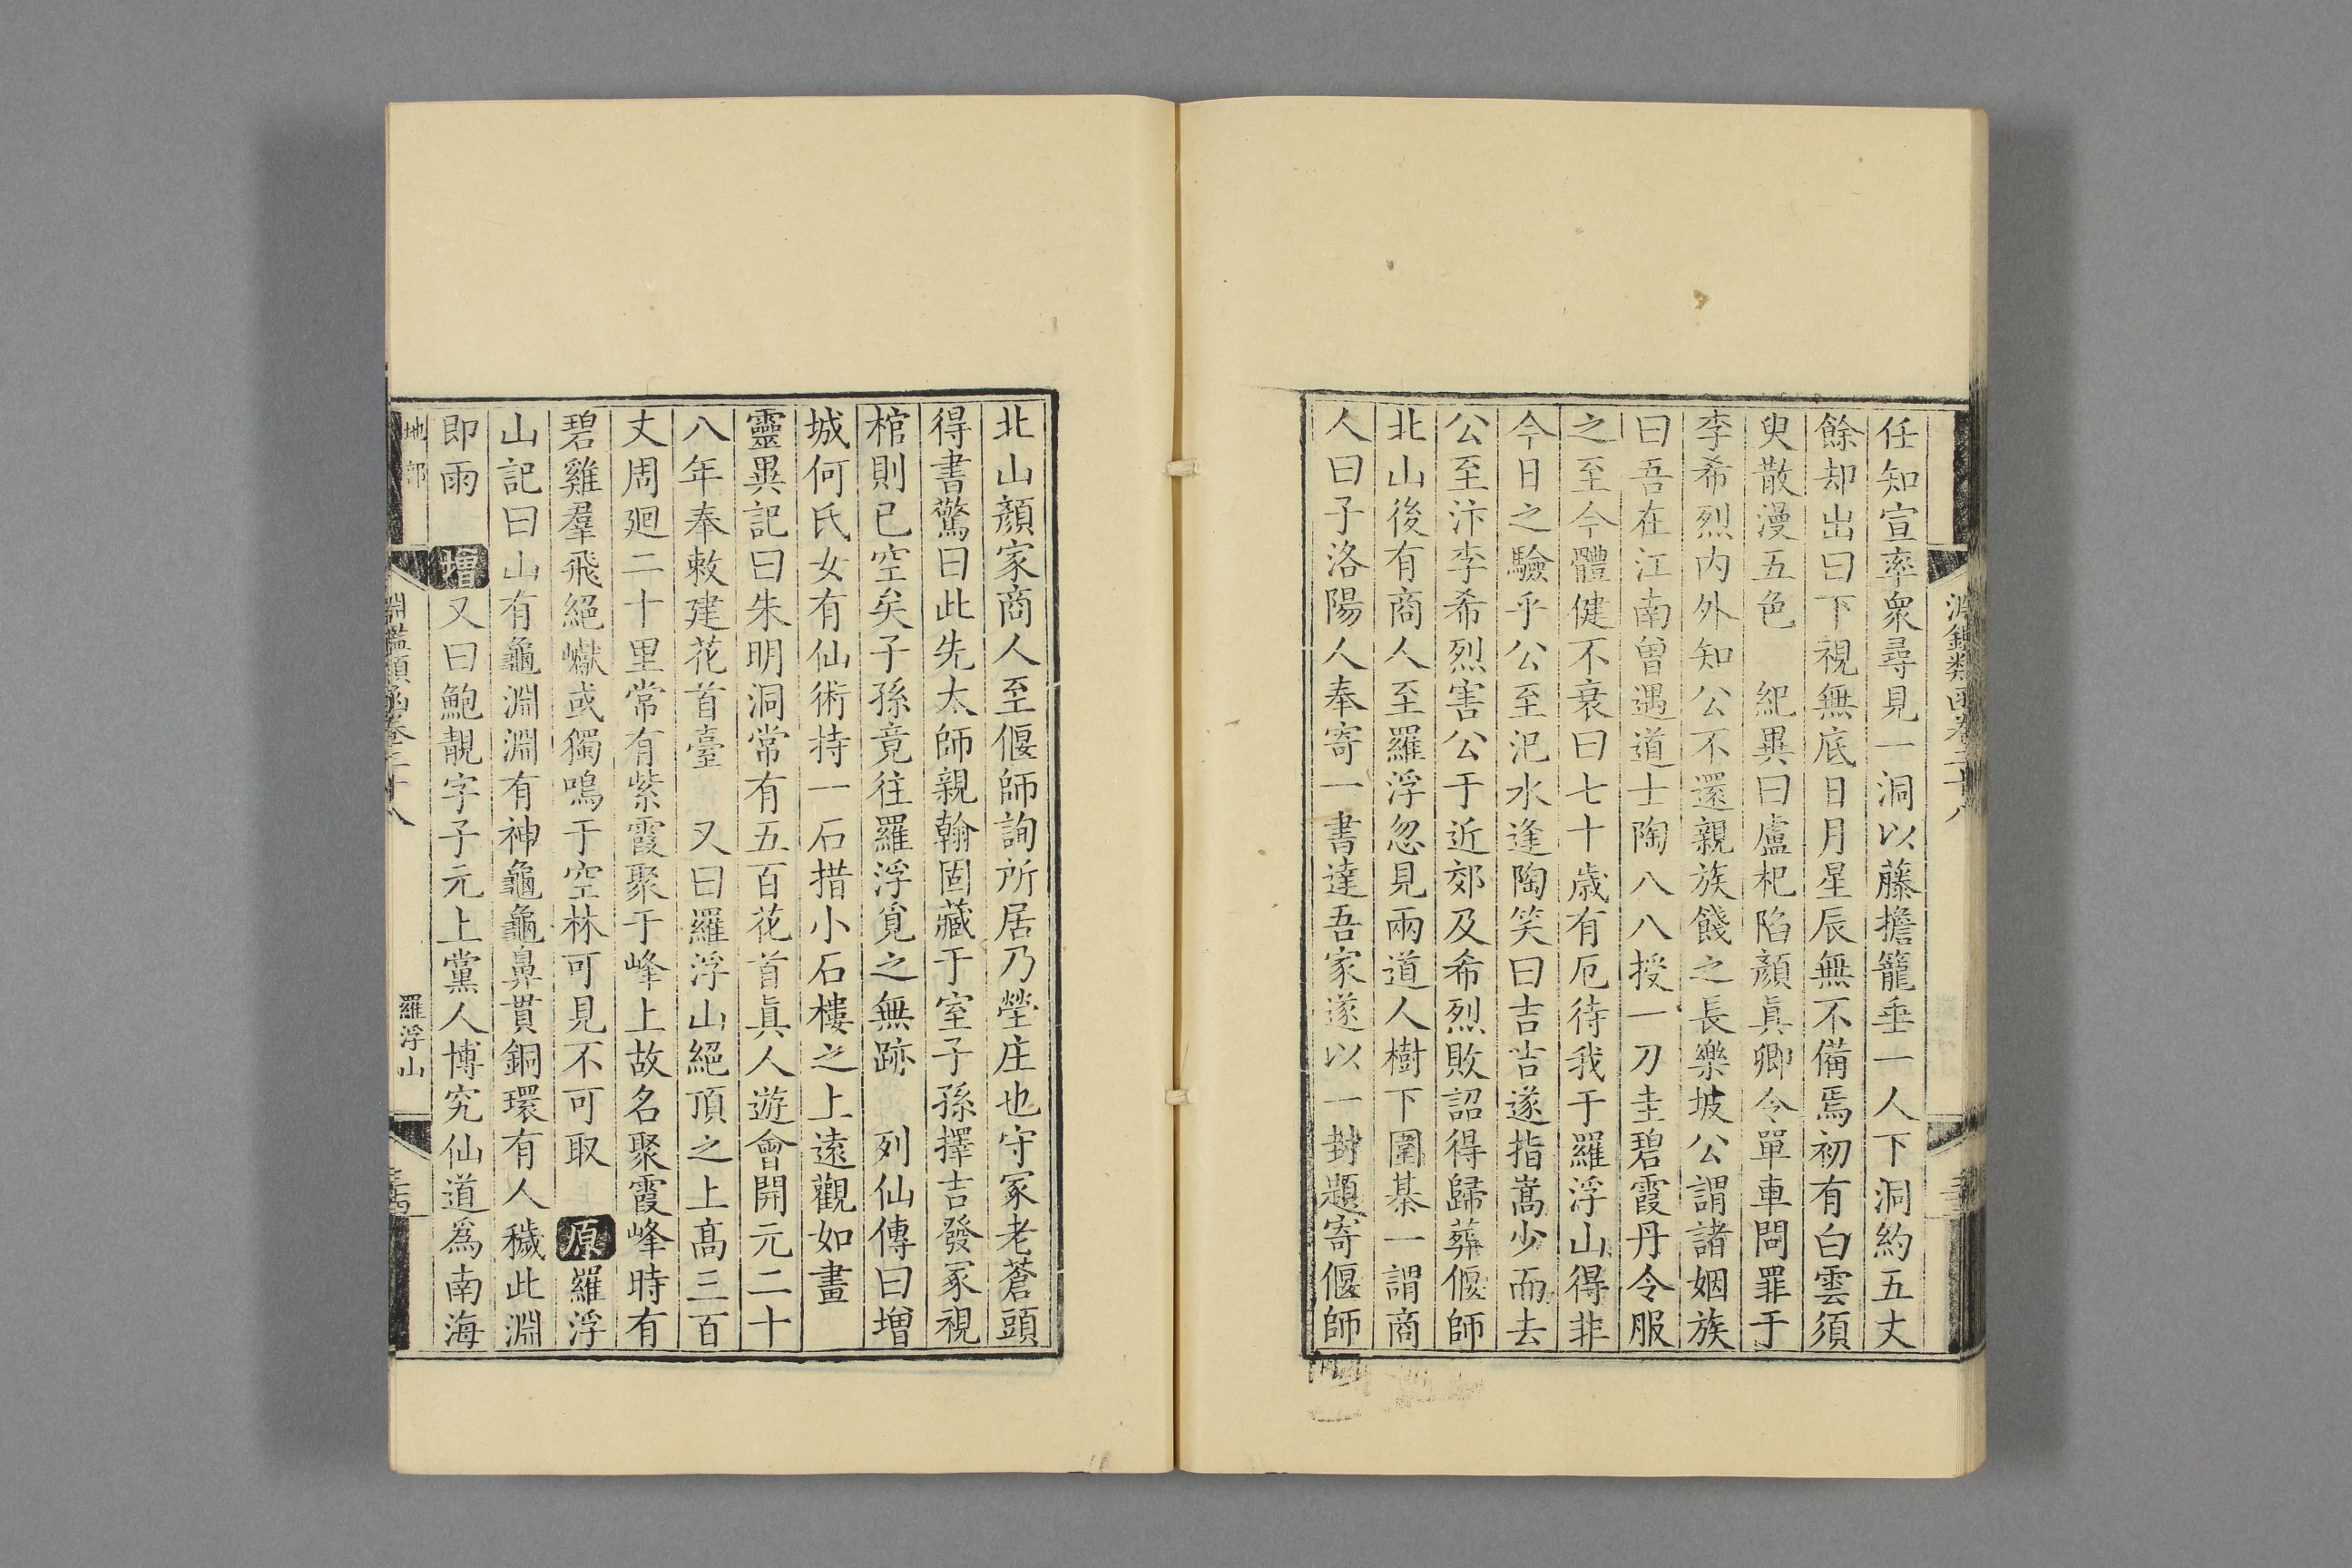 淵鑑類函卷二十八
任知宣率衆尋見一洞以藤擔籠垂一人下洞約五丈
餘却出曰下視無底日月星辰無不備焉初有白雲須
臾散漫五色　紀異曰盧杞陷顏眞卿令單車問罪于
李希烈内外知公不還親族餞之長樂坡公謂諸姻族
曰吾在江南曾遇道士陶八八授一刀圭碧霞丹令服
之至今體健不衰曰七十歲有厄待我于羅浮山得非
今日之驗乎公至汜水逢陶笑曰吉吉遂指嵩少而去
公至汴李希烈害公于近郊及希烈敗詔得歸葬偃師
北山後有商人至羅浮忽見兩道人樹下圍棊一謂商
人曰子洛陽人奉寄一書達吾家遂以一封題寄偃師
北山顏家商人至偃師詢所居乃塋庄也守冢老蒼頭
得書驚曰此先太師親翰固藏于室子孫擇吉發冢視
棺則已空矣子孫竟往羅浮覓之無跡　列仙傳曰增
城何氏女有仙術持一石措小石樓之上遠觀如畫
靈異記曰朱明洞常有五百花首眞人遊會開元二十
八年奉敕建花首臺　又曰羅浮山絕頂之上高三百
丈周廻二十里常有紫霞聚于峰上故名聚霞峰時有
碧雞羣飛絕巘或獨鳴于空林可見不可取　原羅浮
山記曰山有龜淵淵有神龜龜鼻貫銅環有人穢此淵
即雨　增又曰鮑靚字子元上黨人博究仙道爲南海
地部　淵鑑類函卷二十八　羅浮山